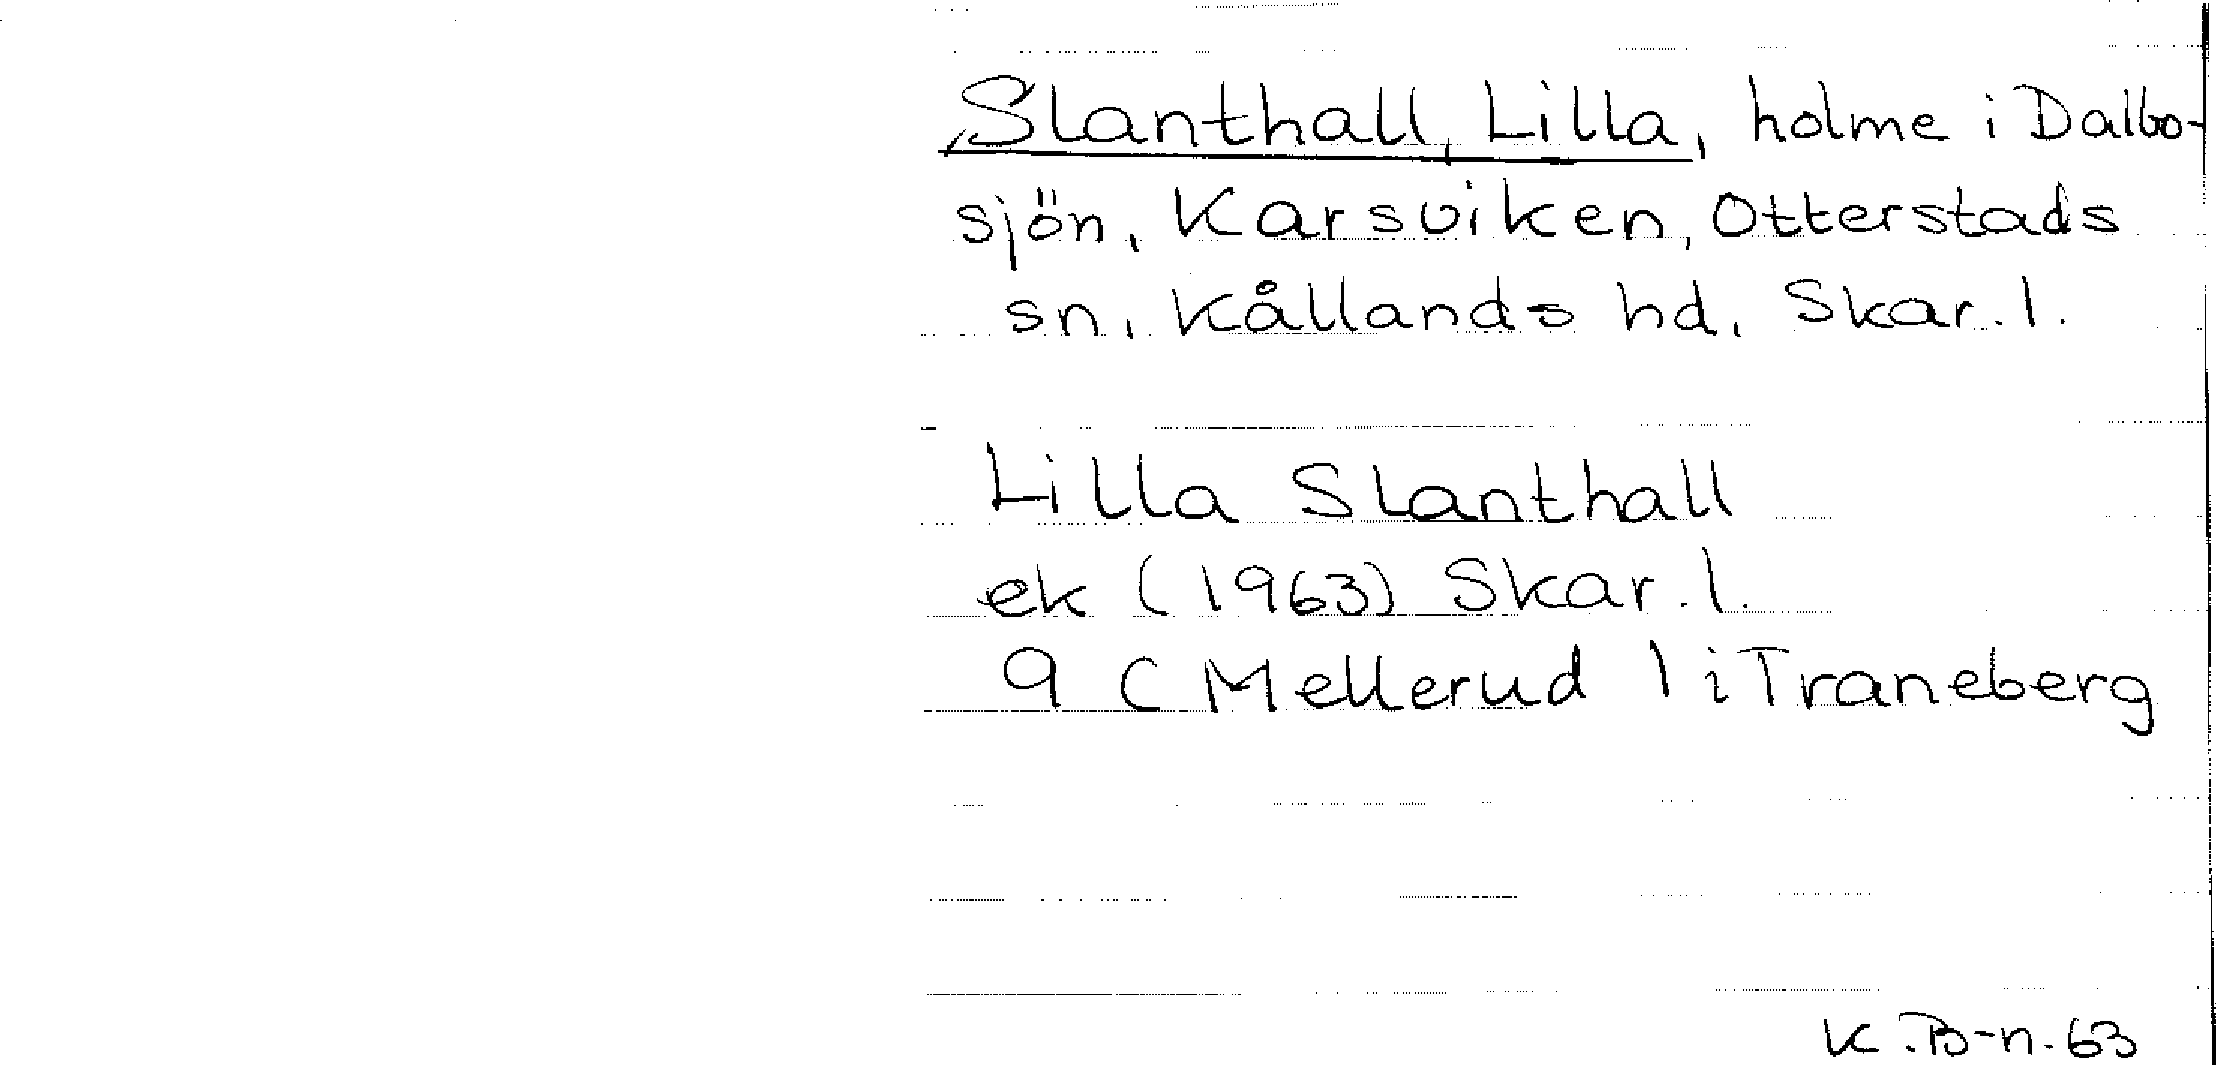 Slanthall, Lilla, holme i Dalbo-
sjön, Karsviken, Otterstads
sn, Kållands hd, Skar. l.
Lilla Slanthall
ek (1963) Skar. l.
9 C Mellerud 1 i Traneberg
K. B-n. 63